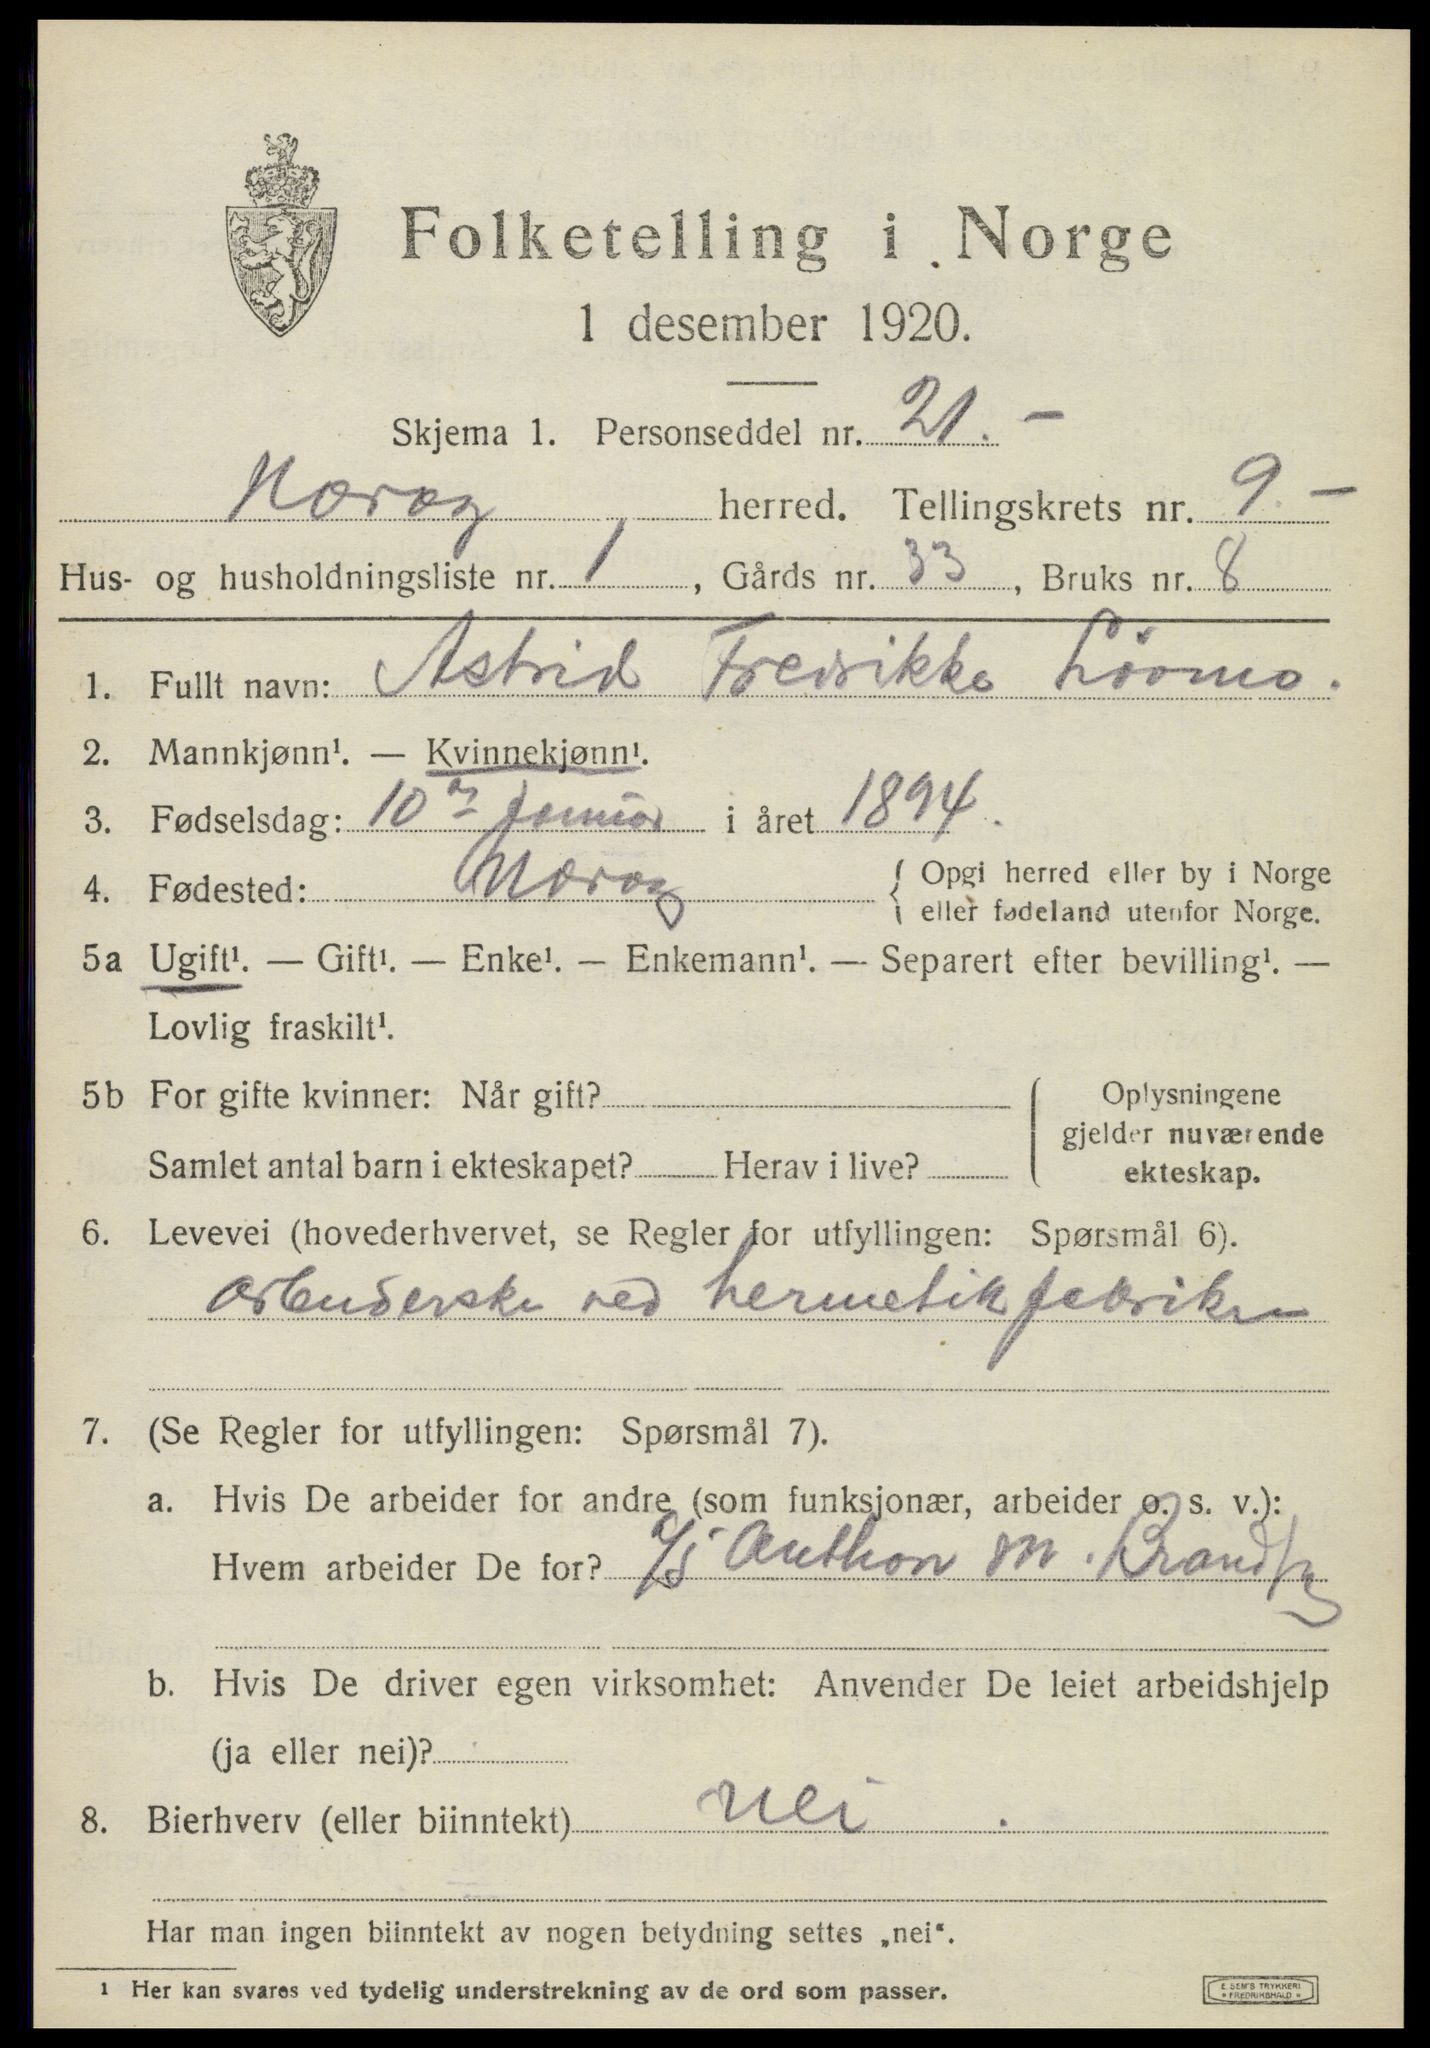 Folketelling i Norge
1 desember 1920.
Skjema 1. Personseddel nr. 21. –
Nærøy herred. Tellingskrets nr. 9. –
Hus- og husholdningsliste nr. 1, Gårds nr. 33, Bruks nr. 8
1. Fullt navn: Astrid Fredrikke Lövmo.
2. Mannkjønn¹. — Kvinnekjønn¹.
3. Fødselsdag: 10de januar i året 1894.
4. Fødested: Nærøy { Opgi herred eller by i Norge
eller fødeland utenfor Norge.
5a Ugift¹. — Gift¹. — Enke¹. — Enkemann¹. — Separert efter bevilling¹. —
Lovlig fraskilt¹.
5b For gifte kvinner: Når gift? Oplysningene
gjelder nuværende
Samlet antal barn i ekteskapet? Herav i live? ekteskap.
6. Levevei (hovederhvervet, se Regler for utfyllingen: Spørsmål 6).
arbeiderske ved hermetikfabriken
7. (Se Regler for utfyllingen: Spørsmål 7).
a. Hvis De arbeider for andre (som funksjonær, arbeider o. s. v.):
Hvem arbeider De for? A/S Anthon M. Brandtz
b. Hvis De driver egen virksomhet: Anvender De leiet arbeidshjelp
(ja eller nei)?
8. Bierhverv (eller biinntekt) nei.
Har man ingen biinntekt av nogen betydning settes „nei“.
¹ Her kan svares ved tydelig understrekning av de ord som passer.
E. SEM'S TRYKKERI
FREDRIKSHALD